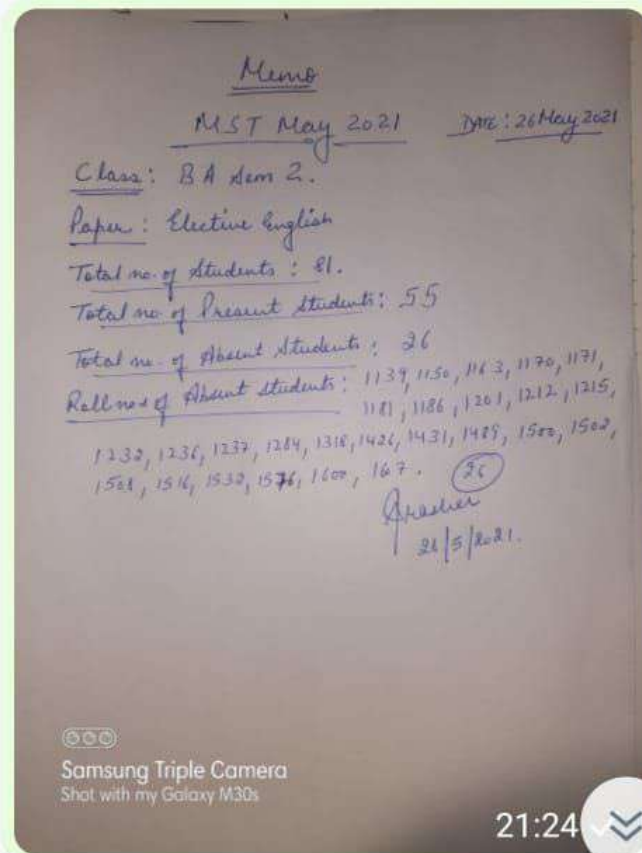 Memo
MST May 2021 DATE: 26 May 2021
Class: BA Sem 2.
Paper: Elective English
Total no. of Students: 81.
Total no. of Present Students: 55
Total no. of Absent Students: 26
Roll nos of Absent Students: 1139, 1150, 1163, 1170, 1171,
1181, 1186, 1201, 1212, 1215,
1232, 1236, 1237, 1284, 1318, 1426, 1431, 1489, 1500, 1502,
1508, 1516, 1532, 1576, 1600, 167. 26
26/5/2021.
Samsung Triple Camera
Shot with my Galaxy M30s
21:24